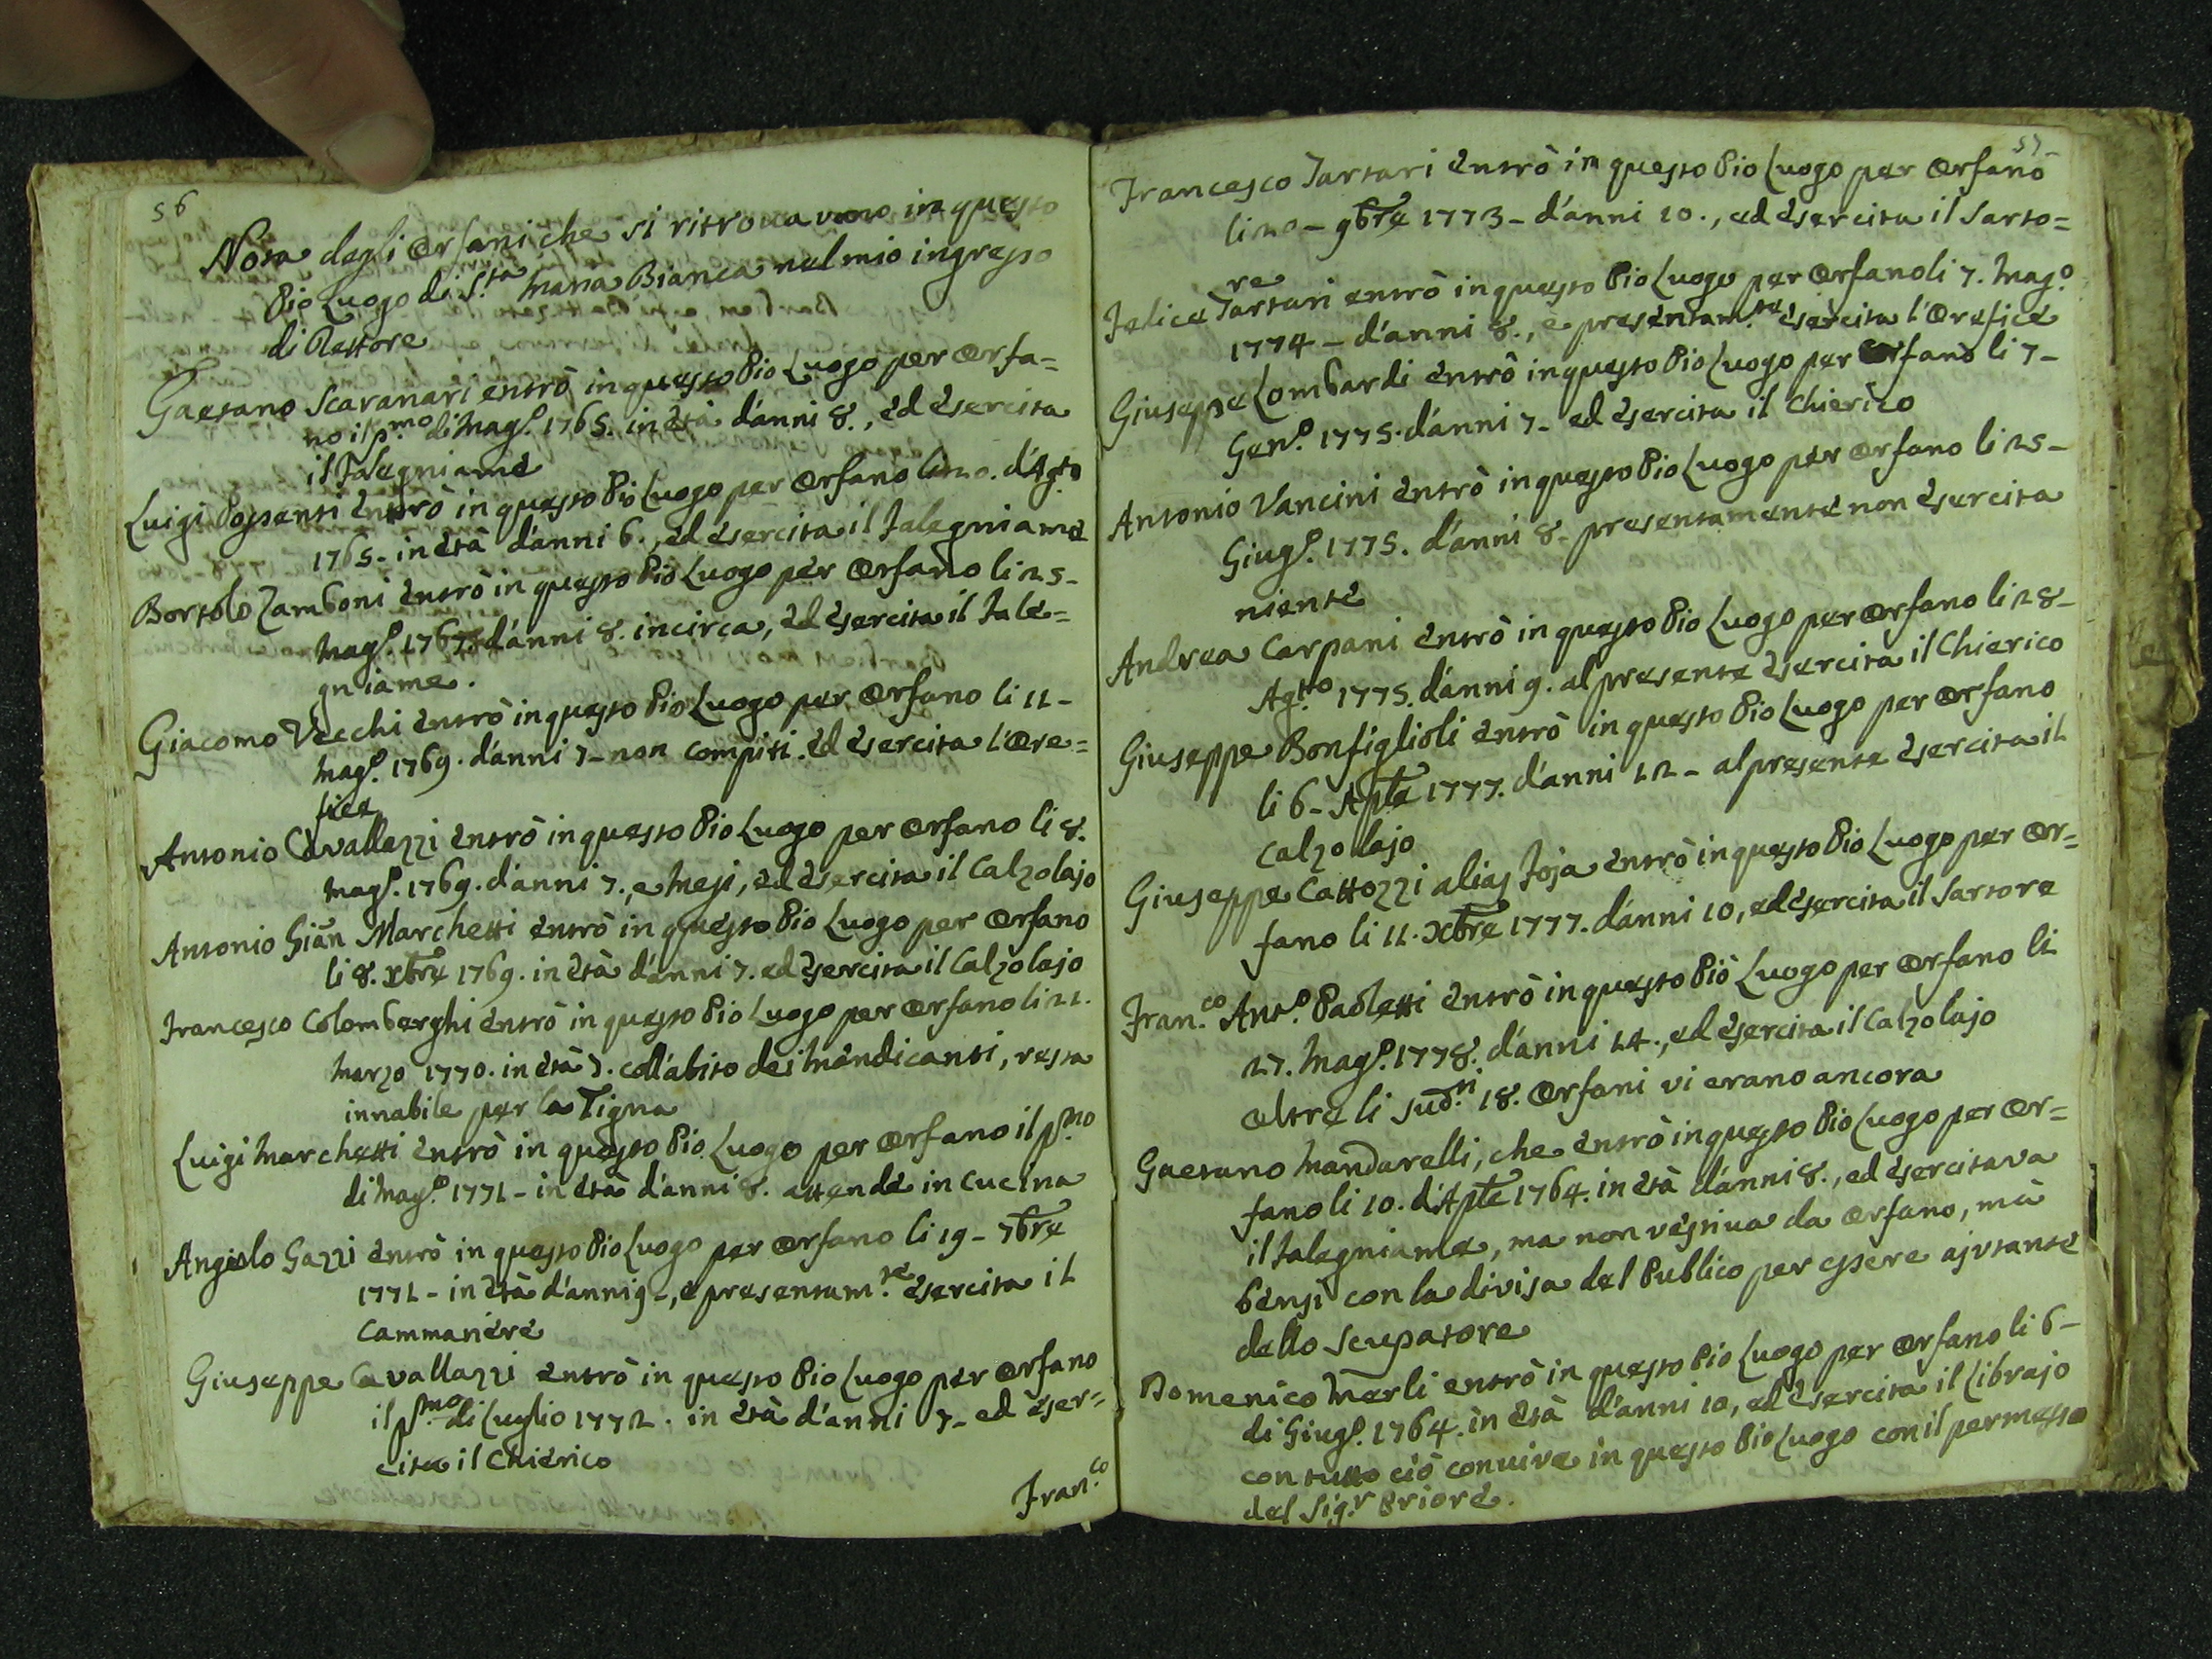 56
Nota degli Orfani che si ritrovavano in questo
Pio Luogo di S.ta Maria Bianca nel mio ingresso
di Rettore
Gaetano Scavanari entrò in questo Pio Luogo per Orfa=
no il p.mo di Mag.o 1765. in età d'anni 8., ed esercita
il Falegniame
Luigi Possenti entrò in questo Pio Luogo per Orfano li 20. d'Ag.to
1765- in età d'anni 6., ed esercita il Falegniame
Bortolo Zamboni entrò in questo Pio Luogo per Orfano li 25-
Mag.o d'anni 8. incirca, ed esercita il Fale=
gniame.
Giacomo Vecchi entrò in questo Pio Luogo per Orfano li 11-
Mag.o 1769. d'anni 7- non compiti. ed esercita l'Ore=
fice
Antonio Cavallazzi entrò in questo Pio Luogo per Orfano li 8.
Mag.o 1769. d'anni 7., e Mesi, ed esercita il Calzolajo
Antonio Giãn Marchetti entrò in questo Pio Luogo per Orfano
li 8. xbre 1769. in età d'anni 7. ed esercita il Calzolajo
Francesco Colomberghi entrò in questo Pio Luogo per Orfano li 21.
Marzo 1770. in età 7. coll'abito dei Mendicanti, resta
innabile per la Tigna
Luigi Marchetti entrò in questo Pio Luogo per Orfano il p.mo
di Mag.o 1771- in età d'anni 8. attende in Cucina
Angiolo Gazzi entrò in questo Pio Luogo per Orfano li 19- 7bre
1771- in età d'anni 9-, e presentam.te esercita il
Cammariere
Giuseppe Cavallazzi entrò in questo Pio Luogo per Orfano
il p.mo di Luglio 1772. in età d'anni 7- ed eser=
cita il Chierico
Fran.co
57-
Francesco Tartari entrò in questo Pio Luogo per Orfano
li 20- 9bre 1773- d'anni 10., ed esercita il Sarto=
re
Felice Tartari entrò in questo Pio Luogo per Orfano li 7. Mag.o
1774- d'anni 8., e presentam.te esercita l'Orefice
Giuseppe Lombardi entrò in questo Pio Luogo per Orfano li 7-
Gen.o 1775. d'anni 7- ed esercita il Chierico
Antonio Vancini entrò in questo Pio Luogo per Orfano li 25-
Giug.o 1775. d'anni 8- presentamente non esercita
niente
Andrea Carpani entrò in questo Pio Luogo per Orfano li 28-
Ag.to 1775. d'anni 9. al presente esercita il Chierico
Giuseppe Bonfiglioli entrò in questo Pio Luogo per Orfano
li 6- Aple 1777. d'anni 12- al presente esercita il
Calzolajo
Giuseppe Cattozzi alias Joja entrò in questo Pio Luogo per Or=
fano li 11. Xbre 1777. d'anni 10, ed esercita il Sartore
Fran.co Ant.o Paoletti entrò in questo Pio Luogo per Orfano li
27. Mag.o 1778. d'anni 14., ed esercita il Calzolajo
Oltre li sud.ti 18. Orfani vi erano ancora
Gaetano Mandarelli, che entrò in questo Pio Luogo per Or=
fano li 10. d'Aple 1764. in età d'anni 8., ed esercitava
il Falegniame, ma non vestiva da Orfano, mà
bensì con la divisa del Publico per essere ajutante
dello Scupatore
Domenico Merli entrò in questo Pio Luogo per Orfano li 6-
di Giug.o 1764. in età d'anni 10, ed esercita il Librajo
con tutto ciò convive in questo Pio Luogo con il permesso
del Sig.r Priore.